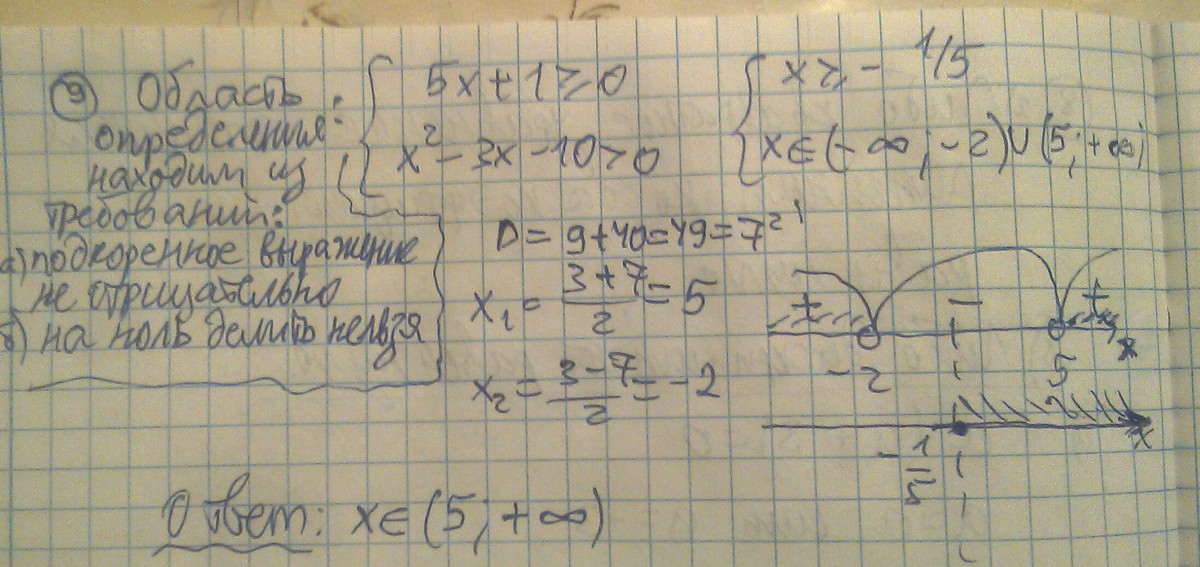 9) Область
определения:
находим из
требований:
а) подкоренное выражение
не отрицательно
б) на ноль делить нельзя
{ 5x+1≥0
x²-3x-10>0
{ x≥-1/5
x∈(-∞;-2)∪(5;+∞)
D=9+40=49=7²
x₁=(3+7)/2=5
x₂=(3-7)/2=-2
+ − +
-2 5 x
-1/5 x
Ответ: x∈(5;+∞)